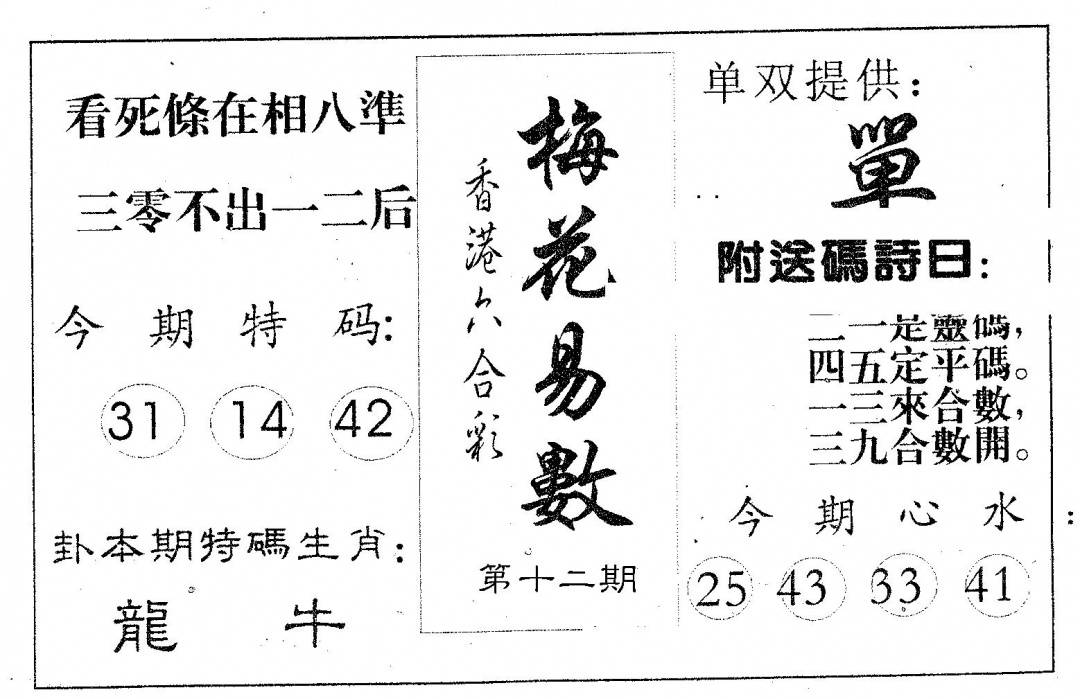 看死條在相八準
三零不出一二后
今期特码:
31 14 42
卦本期特碼生肖:
龍 牛
梅花易數
香港六合彩
第十二期
单双提供:
單
附送碼詩曰:
二一是靈碼,
四五定平碼。
一三來合數,
三九合數開。
今期心水:
25 43 33 41